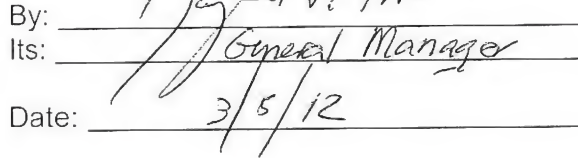 By:
Its: General Manager
Date: 3/5/12